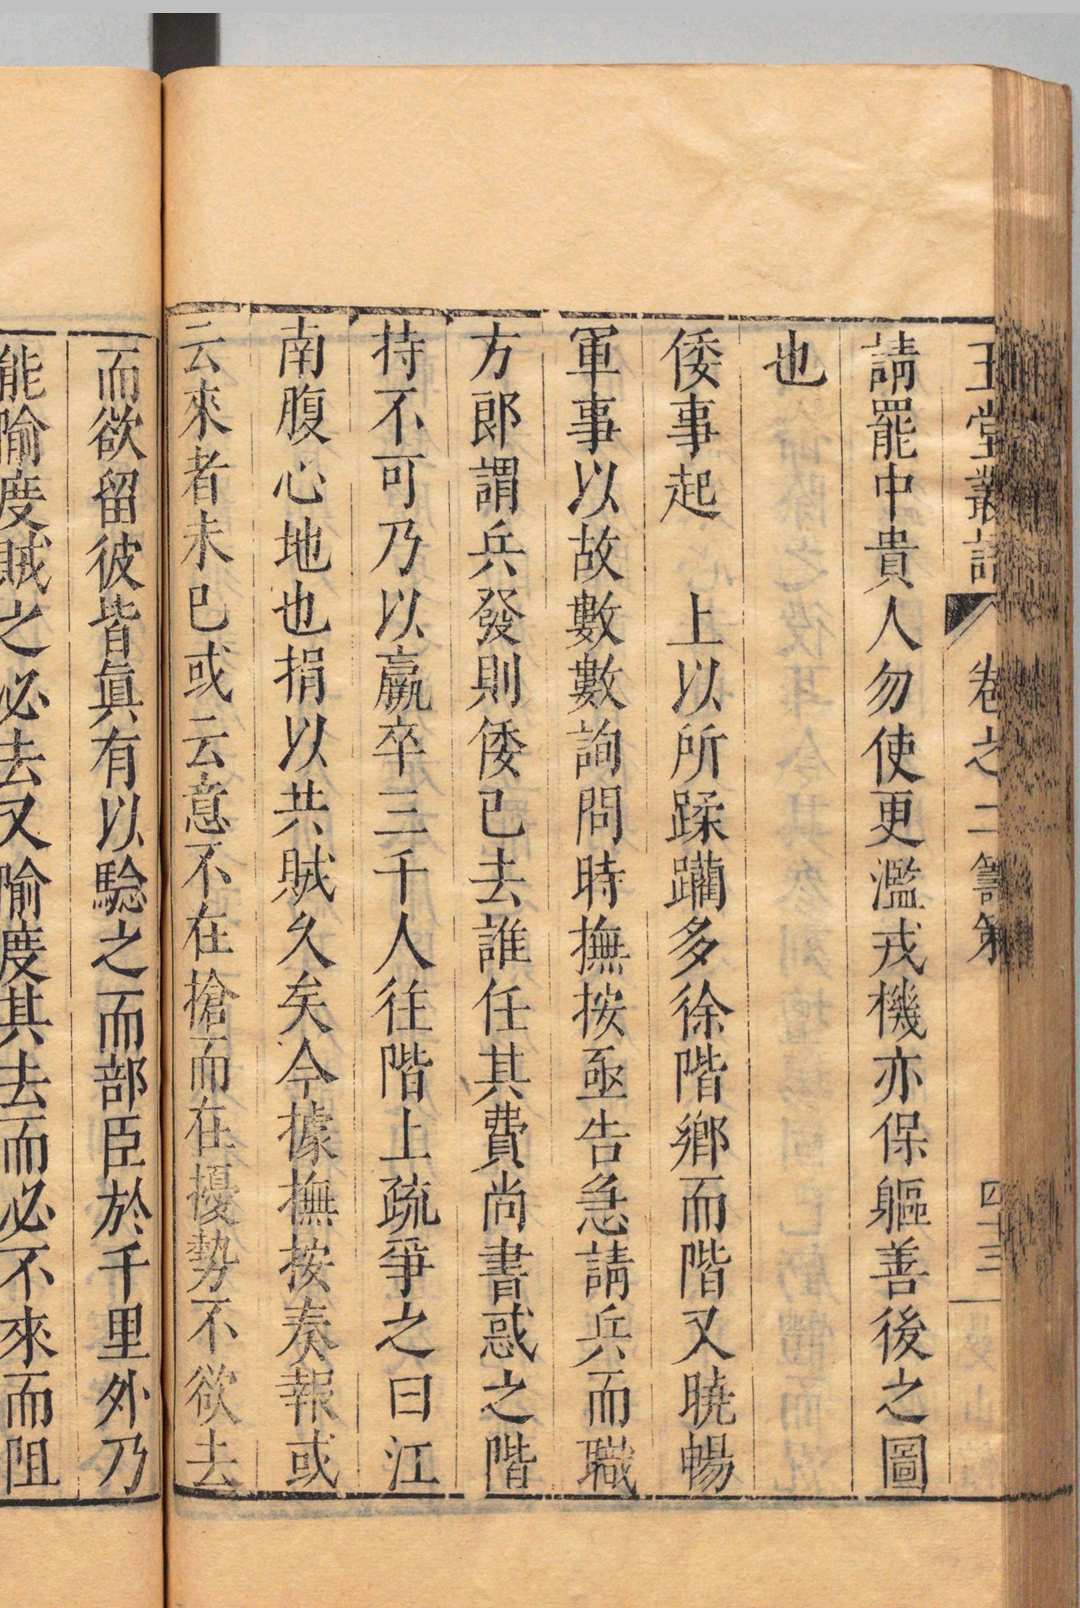 玉堂叢語 卷之二 籌策 四十三
請罷中貴人勿使更濫戎機亦保軀善後之圖
也
倭事起 上以所蹂躪多徐階鄉而階又曉暢
軍事以故數數詢問時撫按亟告急請兵而職
方郎謂兵發則倭已去誰任其費尚書惑之階
持不可乃以羸卒三千人往階上疏爭之曰江
南腹心地也捐以共賊久矣今據撫按奏報或
云來者未已或云意不在搶而在擾勢不欲去
而欲留彼皆眞有以驗之而部臣於千里外乃
能隃度賊之必去又隃度其去而必不來而阻